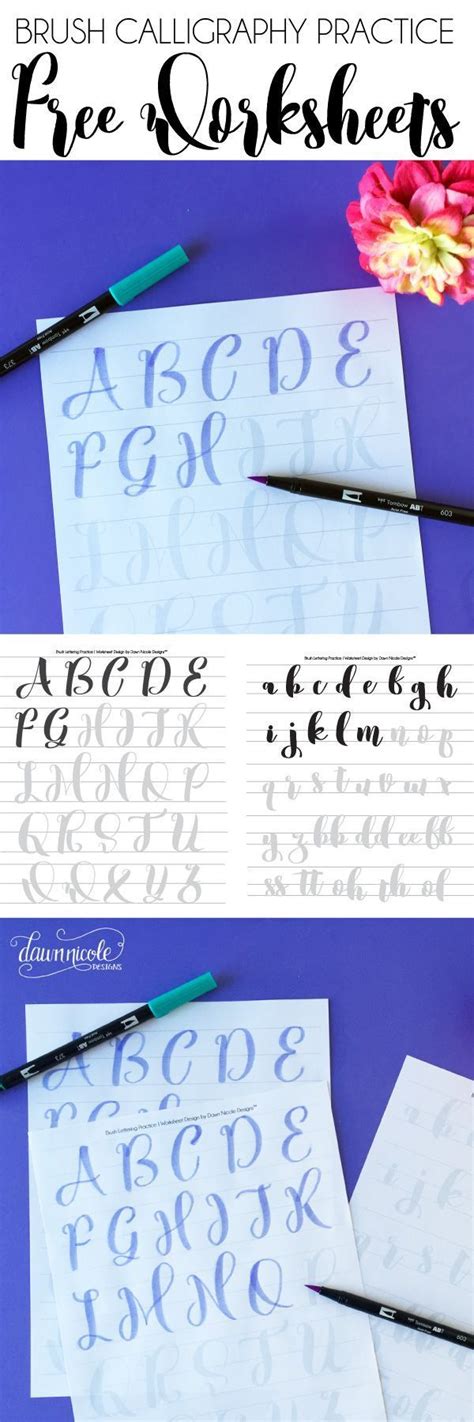 BRUSH CALLIGRAPHY PRACTICE
Free Worksheets
Tombow ABT
373
A B C D E
F G H I J K
L M N O P
Tombow ABT
603
Brush Lettering Practice | Worksheet Design by Dawn Nicole Designs™
A B C D E
F G H I J K
L M N O P
Q R S T U
V W X Y Z
Brush Lettering Practice | Worksheet Design by Dawn Nicole Designs™
a b c d e f g h
i j k l m n o p
q r s t u v w x
y z bb dd ee ff
ss tt oh th of
dawn nicole
DESIGNS
373
A B C D E
Brush Lettering Practice | Worksheet Design by Dawn Nicole Designs™
A B C D E
F G H I J K
L M N O P
Q R S T U
Tombow ABT
603